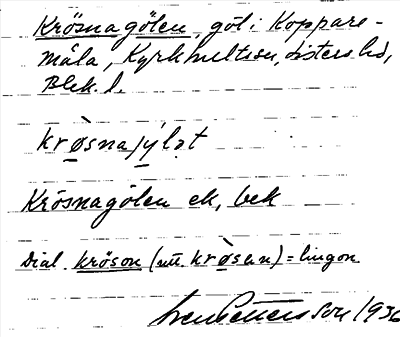 Krösnagölen, göl i Koppare-
måla, Kyrkhultssn, Listers hd,
Blek. l.
krø̀snajýlət
Krösnagölen ek, bek
Dial. kröson (utt. krø̀sen) = lingon
Sven Pettersson 1936